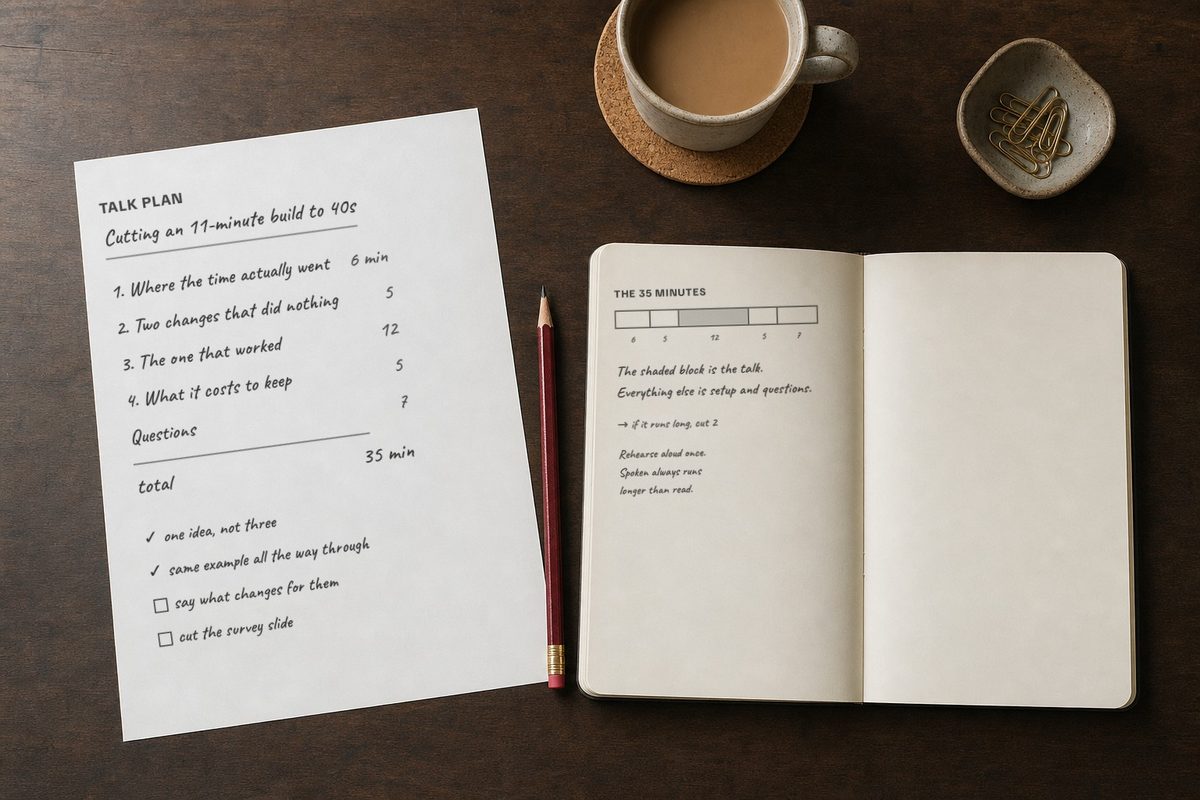 TALK PLAN
Cutting an 11-minute build to 40s
1. Where the time actually went 6 min
2. Two changes that did nothing 5
3. The one that worked 12
4. What it costs to keep 5
Questions 7
total 35 min
✓ one idea, not three
✓ same example all the way through
☐ say what changes for them
☐ cut the survey slide
THE 35 MINUTES
6 5 12 5 7
The shaded block is the talk.
Everything else is setup and questions.
→ if it runs long, cut 2
Rehearse aloud once.
Spoken always runs
longer than read.